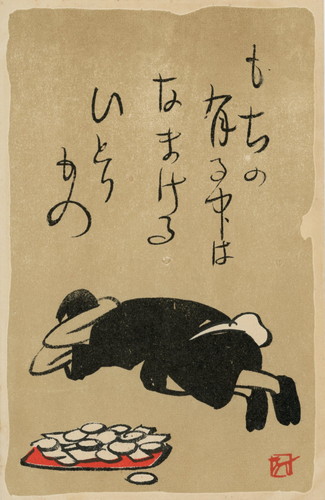 もちの
有る中は
なまける
ひとり
もの